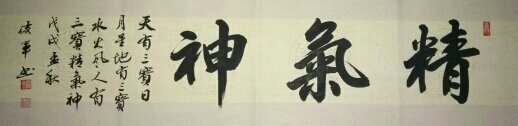 精氣神
天有三寶日
月星地有三寶
水火風人有
三寶精氣神
戊戌孟秋
俊軍书